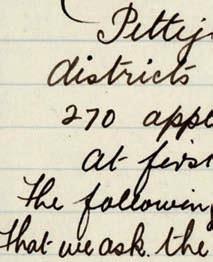 Pettig
districts
270 appl
at first
The following
that we ask the